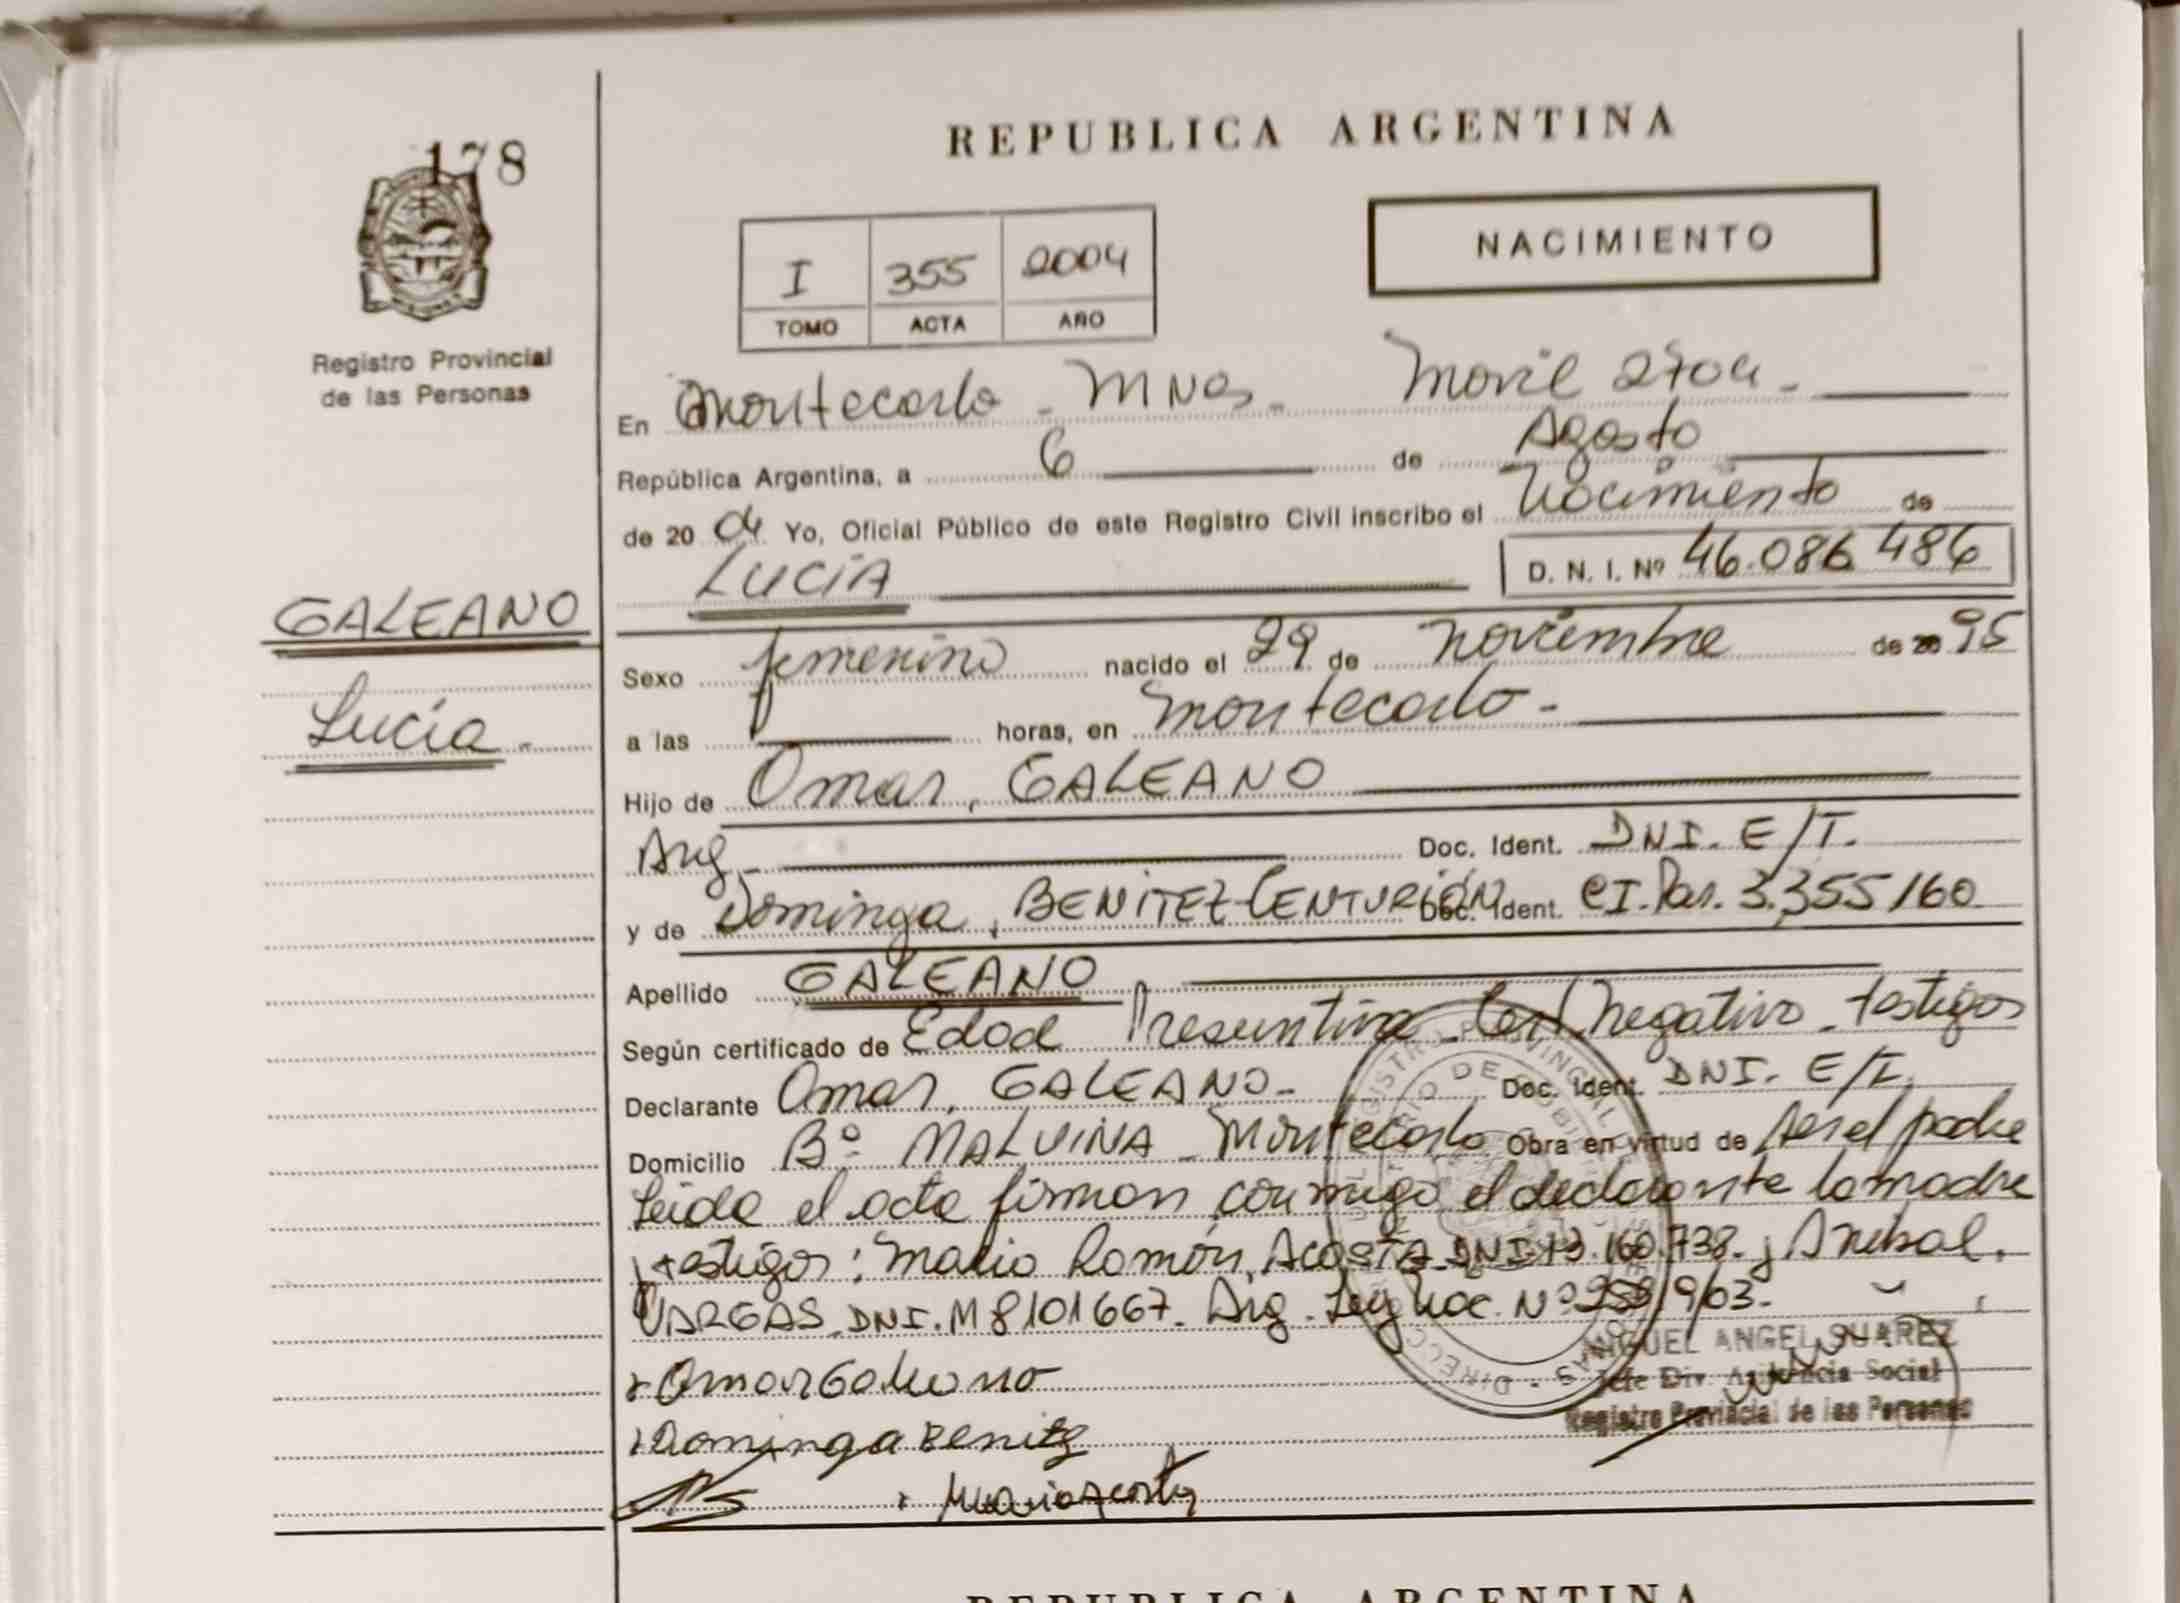 178
Registro Provincial
de las Personas
GALEANO
Lucía.-
REPUBLICA ARGENTINA
NACIMIENTO
I 355 2004
TOMO ACTA AÑO
En Montecarlo - MNes. Movil 2704.-
República Argentina, a 6 de Agosto
de 20 04 Yo, Oficial Público de este Registro Civil inscribo el Nacimiento de
LUCÍA D. N. I. Nº 46.086.486
Sexo femenino nacido el 29 de Noviembre de 20 95
a las horas, en Montecarlo.-
Hijo de Omar, GALEANO
Arg.- Doc. Ident. DNI. E/T.
y de Dominga, BENITEZ CENTURIÓN Doc. Ident. CI. Par. 3.355160
Apellido GALEANO
Según certificado de Edad Presuntiva - Cert. Negativo - testigos
Declarante Omar, GALEANO.- Doc. Ident. DNI. E/T.
Domicilio Bº MALVINA - Montecarlo Obra en virtud de ser el padre
Leida el acta firman conmigo el declarante la madre
y testigos: Mario Ramón, ACOSTA DNI 13.160.738. y Anibal,
VARGAS. DNI. M 8101667. Arg. Ley Nac. Nº /9/03.
MIGUEL ANGEL SUAREZ
Jefe Div. Asistencia Social
Registro Provincial de las Personas
Omar Galeano
Dominga Benitez
Mario Acosta
REPUBLICA ARGENTINA